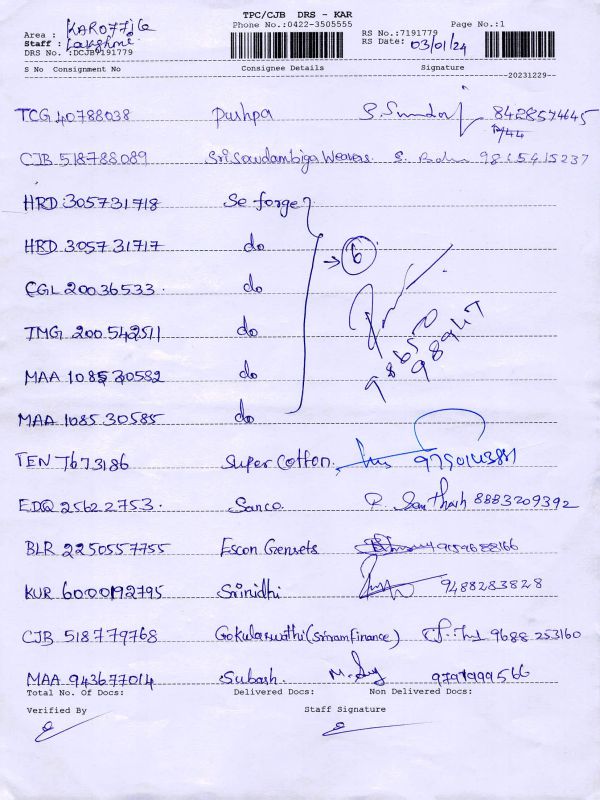 TPC/CJB DRS - KAR
Phone No.:0422-3505555 Page No.:1
Area : KARO77
Staff : Lakshmi
DRS No. :DCJB7191779
RS No.:7191779
RS Date: 03/01/24
S No Consignment No Consignee Details Signature
20231229
TCG 40788038 Pushpa 8428574645
CJB 518788089 Sri Sowdambiga Weavers. 9815415237
HRD 305731718 Se forge
HRD 305731717 do → 6
CGL 20036533 do
TMG 200542511 do
MAA 108530582 do 986570
MAA 108530585 do 98947
TEN 7673186 Super Cotton,
EDQ 25622753. Sanco P. Santhosh 8883209392
BLR 2250557755 Escon Gensets
KUR 6000192795 Srinidhi 9488283828
CJB 518779768 Gokulaswathi (Sriram finance) 9688 253160
MAA 943677014 Subash. 9797999566
Total No. Of Docs: Delivered Docs: Non Delivered Docs:
Verified By Staff Signature